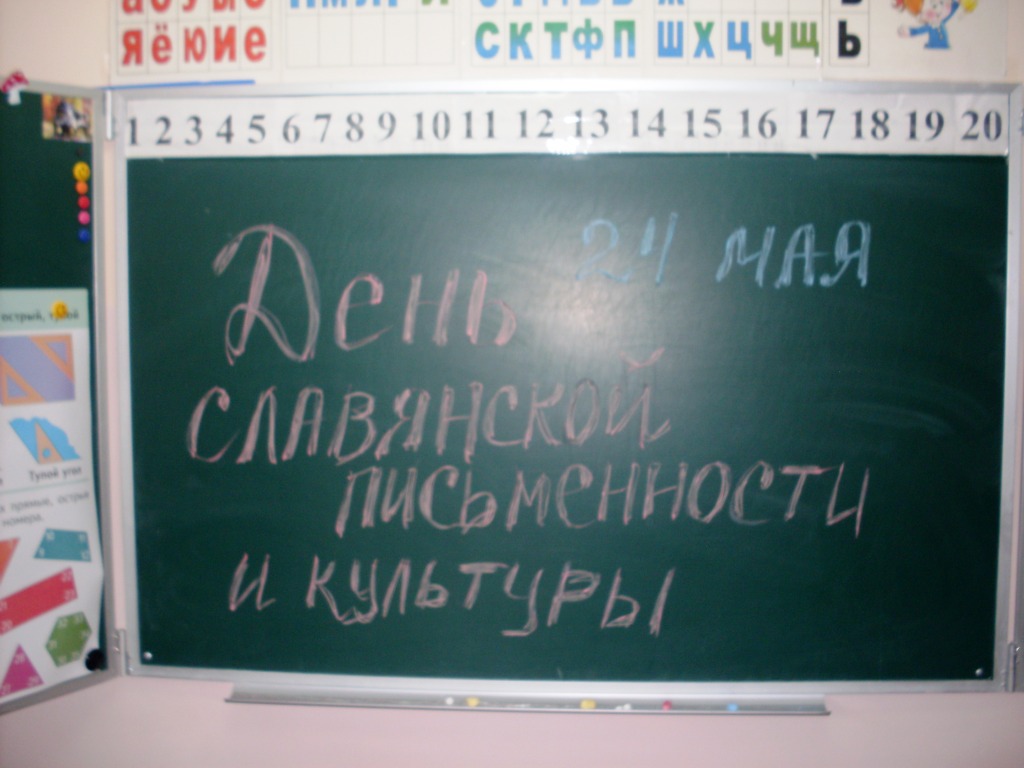 я ё ю и е
с к т ф п ш х ц ч щ ь
1 2 3 4 5 6 7 8 9 10 11 12 13 14 15 16 17 18 19 20
24 МАЯ
День
СЛАВЯНСКОЙ
ПИСЬМЕННОСТИ
И КУЛЬТУРЫ
острый, тупой
Тупой угол
прямые, острые
номера.